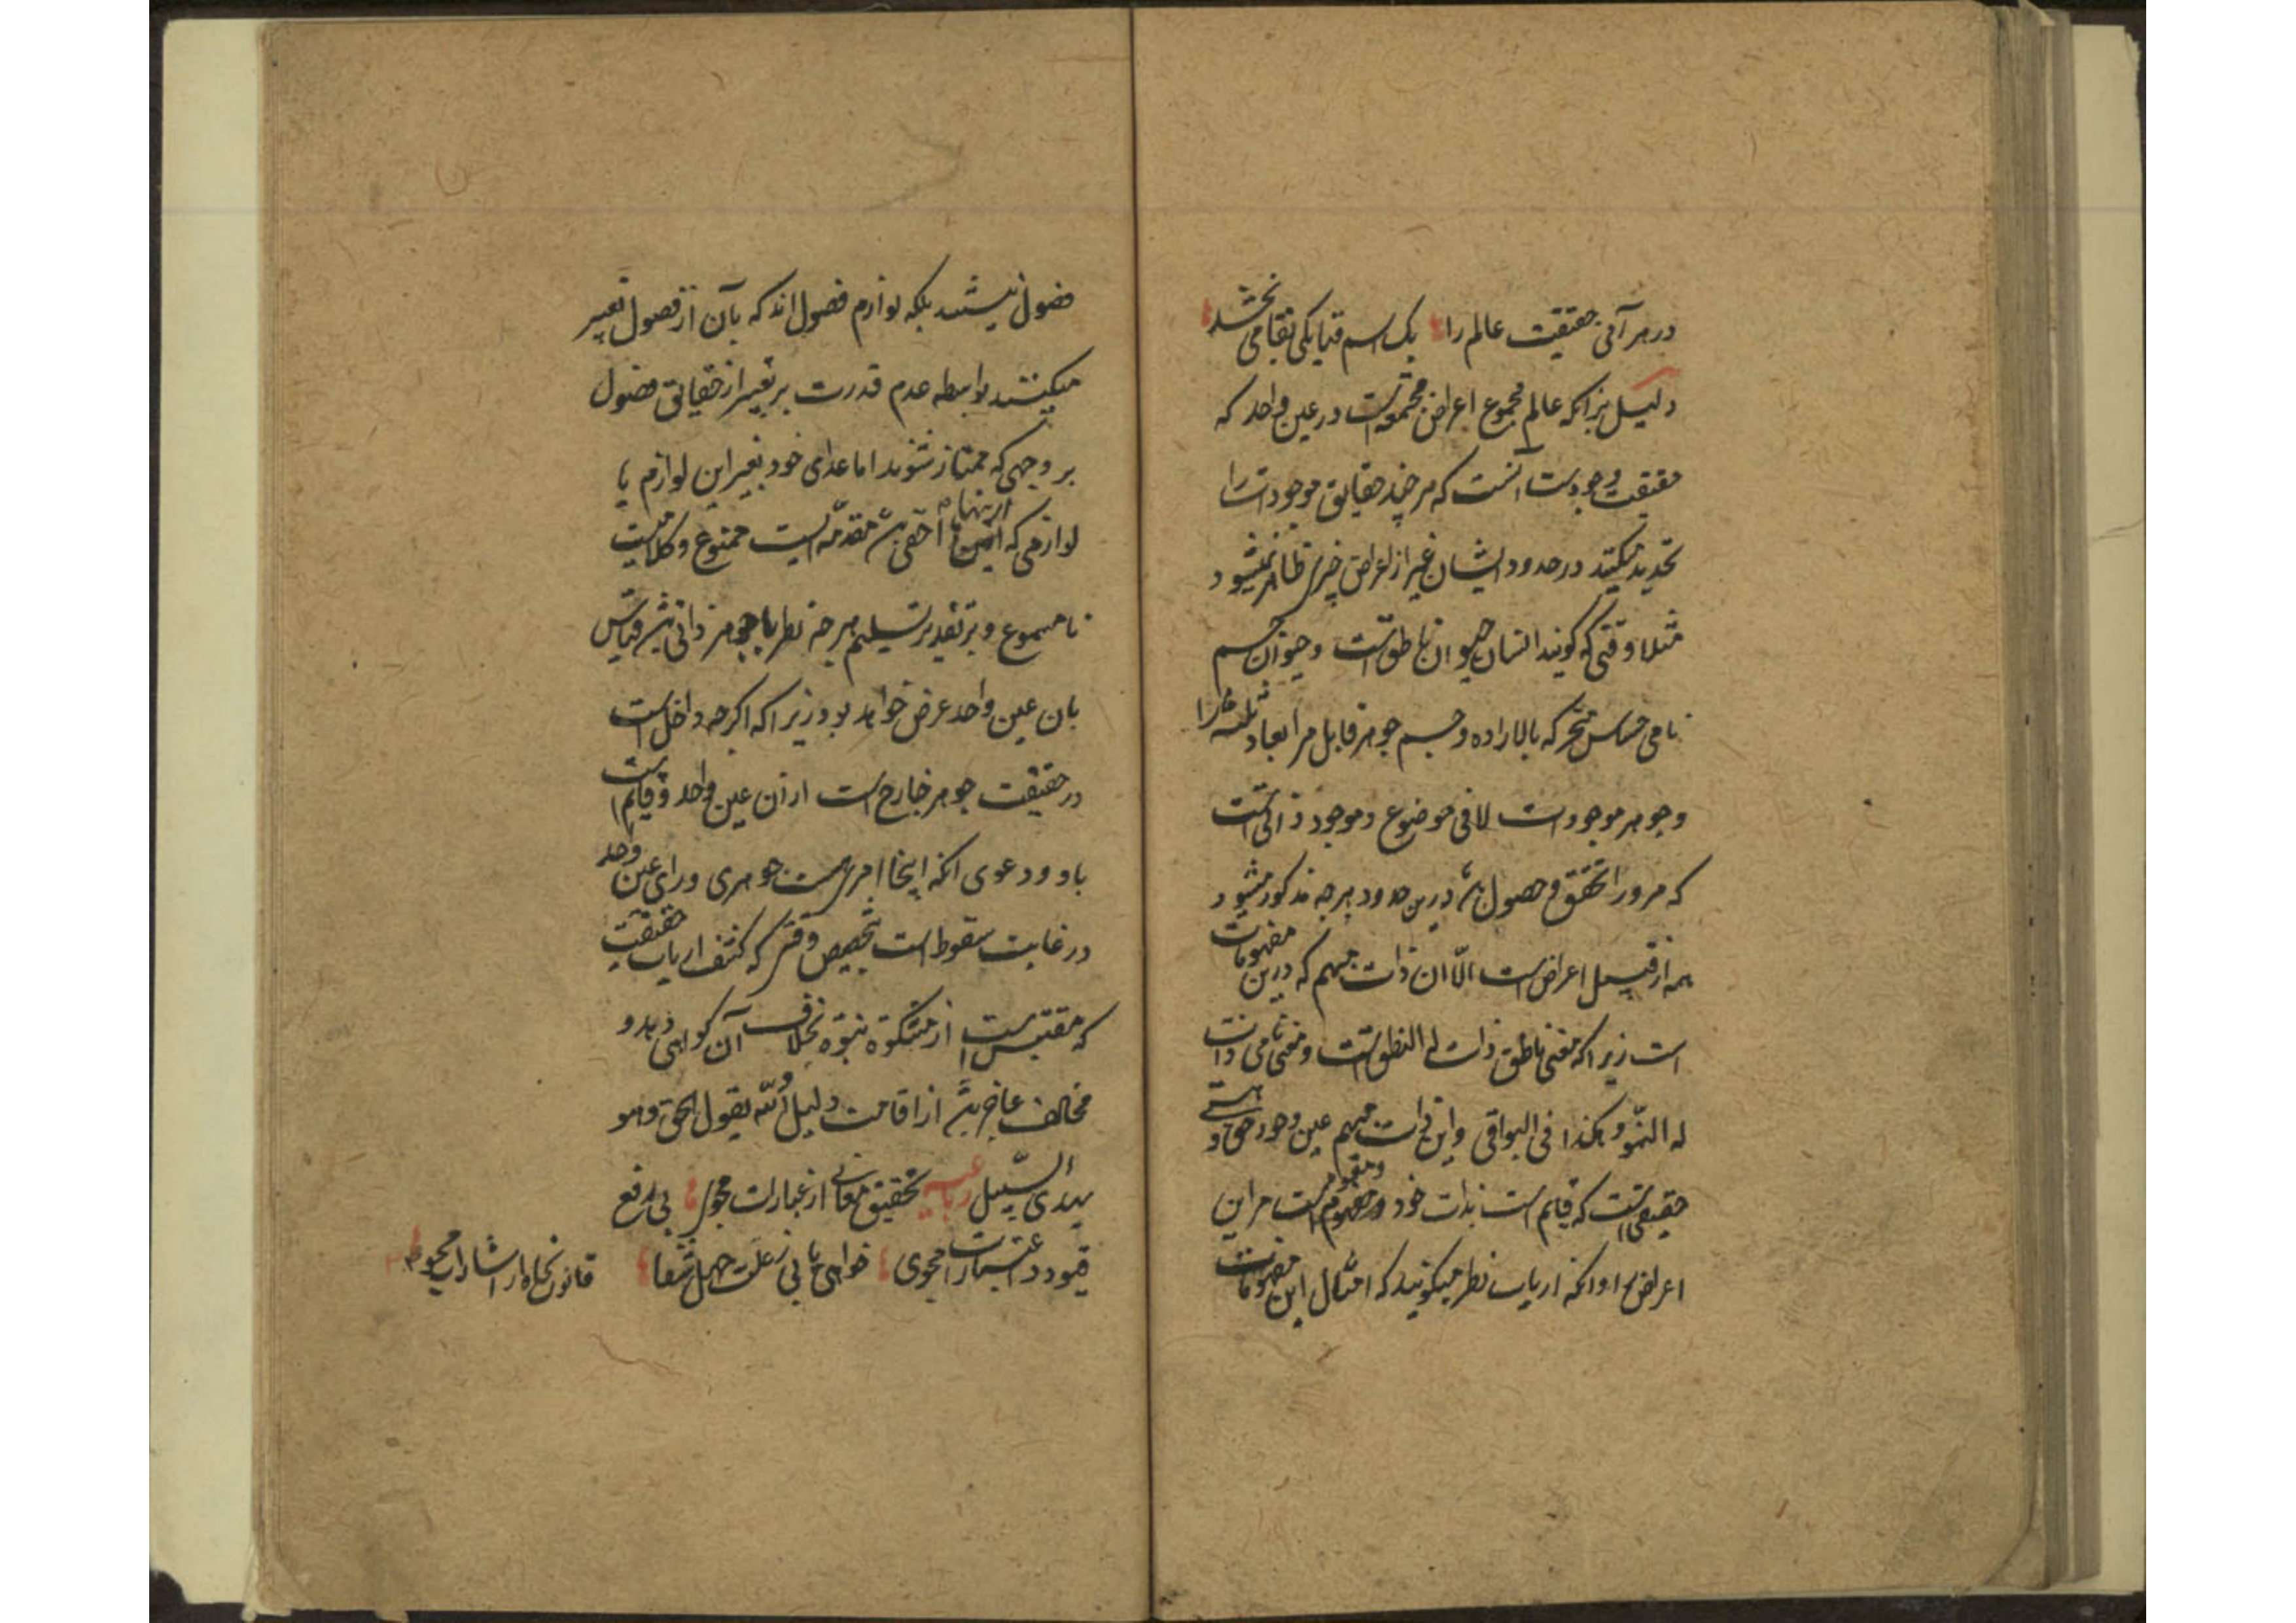 در هر آنی حقیقت عالم را یک اسم فنا یکی بقا می بخشد
دلیل بر آنکه عالم مجموع اعراض مجتمعه است در عین واحد که
حقیقت وجودست آنست که هر چند حقایق موجودات را
تحدید میکنند در حدود ایشان غیر از اعراض چیزی ظاهر نمیشود
مثلا وقتی که گویند انسان حیوان ناطق است و حیوان جسم
نامی حساس متحرک بالاراده و جسم جوهر قابل مر ابعاد ثلثه را
و جوهر موجودست لا فی موضوع و موجود ذاتی است
که مر او را تحقق و حصول باشد درین حدود هر چه مذکور میشود
همه از قبیل اعراض است الا آن ذات مبهم که درین مفهومات
است زیرا که معنی ناطق ذات له النطق است و معنی نامی ذات
له النمو و هکذا فی البواقی و این ذات مبهم عین وجود حق و هستی
حقیقی است که قایم است بذات خود و مقوم است مر این
اعراض را و آنکه ارباب نظر میگویند که امثال این مفهومات
فصول نیستند بلکه لوازم فصول اند که بآن از فصول تعبیر
میکنند بواسطه عدم قدرت بر تعبیر از حقایق فصول
بر وجهی که ممتاز شوند اما عدای خود بغیر این لوازم یا
لوازمی که ازینها اخفی باشد مقدمه ایست ممنوع و کلامیست
نامسموع و بر تقدیر تسلیم هر چه نظر با جوهر ذاتی باشد قیاس
بان عین واحد عرض خواهد بود زیرا که اگرچه داخل است
در حقیقت جوهر خارج است از آن عین واحد و قایم است
باو و دعوی آنکه اینجا امری هست جوهری ورای عین واحد
در غایت سقوط است بتخصیص وقتی که کشف ارباب حقیقت
که مقتبس است از مشکوة نبوة بخلاف آن گواهی دهد و
مخالف عاجز باشد از اقامت دلیل و الله یقول الحق و هو
یهدی السبیل رباعیه تحقیق معانی از عبارات مجوی بی رفع
قیود و اعتبارات مجوی خواهی یابی ز علت جهل شفا قانون نجاة از اشارات مجوی